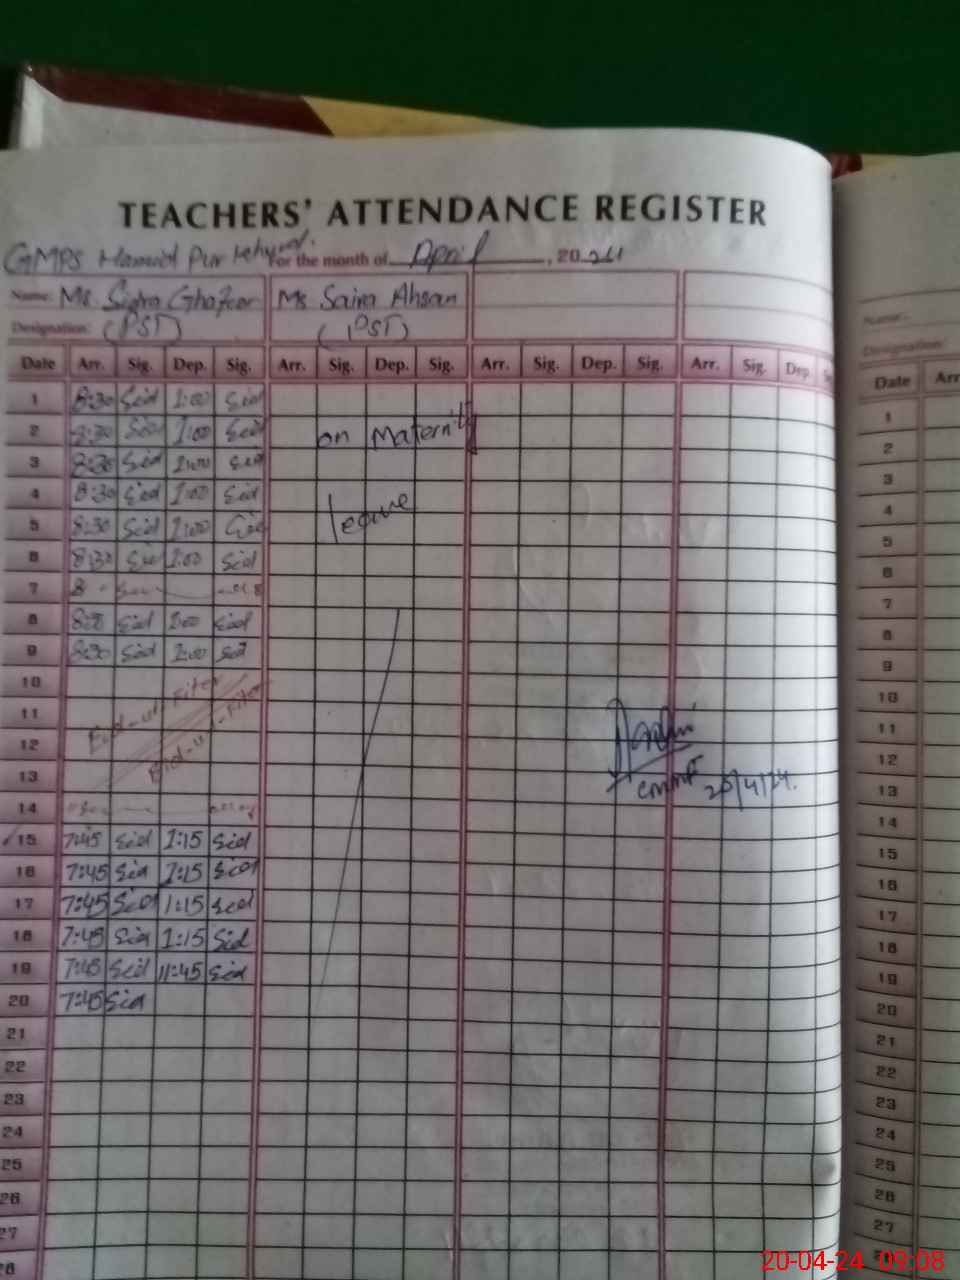 TEACHERS' ATTENDANCE REGISTER
GMPS Hamid Pur for the month of April, 2024
Name: Ms. Ghafoor Ms Saira Ahsan
Designation: (PST) (PST)
Date Arr. Sig. Dep. Sig. Arr. Sig. Dep. Sig. Arr. Sig. Dep. Sig. Arr. Sig. Dep.
1 8:30 Sid 1:00 Sid
2 8:30 Sid 1:00 Sid on Maternity
3 8:30 Sid 1:00 Sid
4 8:30 Sid 1:00 Sid leave
5 8:30 Sid 1:00 Sid
6 8:30 Sid 1:00 Sid
7
8 8:30 Sid 1:00 Sid
9 8:30 Sid 1:00 Sid
10 Eid-ul-Fiter
11 Eid-ul-Fiter
12
13 20/4/24.
14
15 7:45 Sid 1:15 Sid
16 7:45 Sid 1:15 Sid
17 7:45 Sid 1:15 Sid
18 7:45 Sid 1:15 Sid
19 7:45 Sid 11:45 Sid
20 7:45 Sid
21
22
23
24
25
26
27
28
Name:
Designation:
Date Arr
1
2
3
4
5
6
7
8
9
10
11
12
13
14
15
16
17
18
19
20
21
22
23
24
25
26
27
20-04-24 09:08